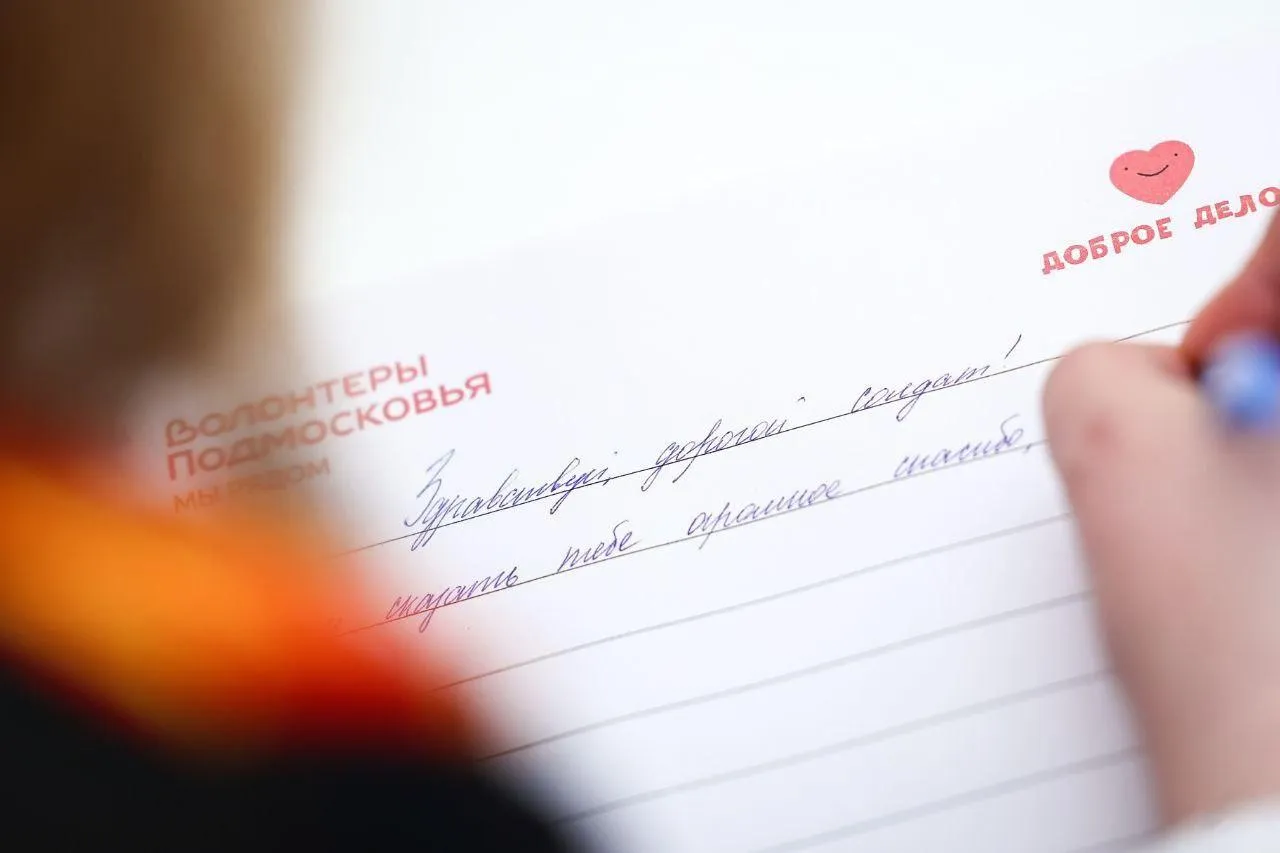 ДОБРОЕ ДЕЛО
ВОЛОНТЕРЫ
ПОДМОСКОВЬЯ
МЫ РЯДОМ
Здравствуй, дорогой солдат!
сказать тебе огромное спасибо,